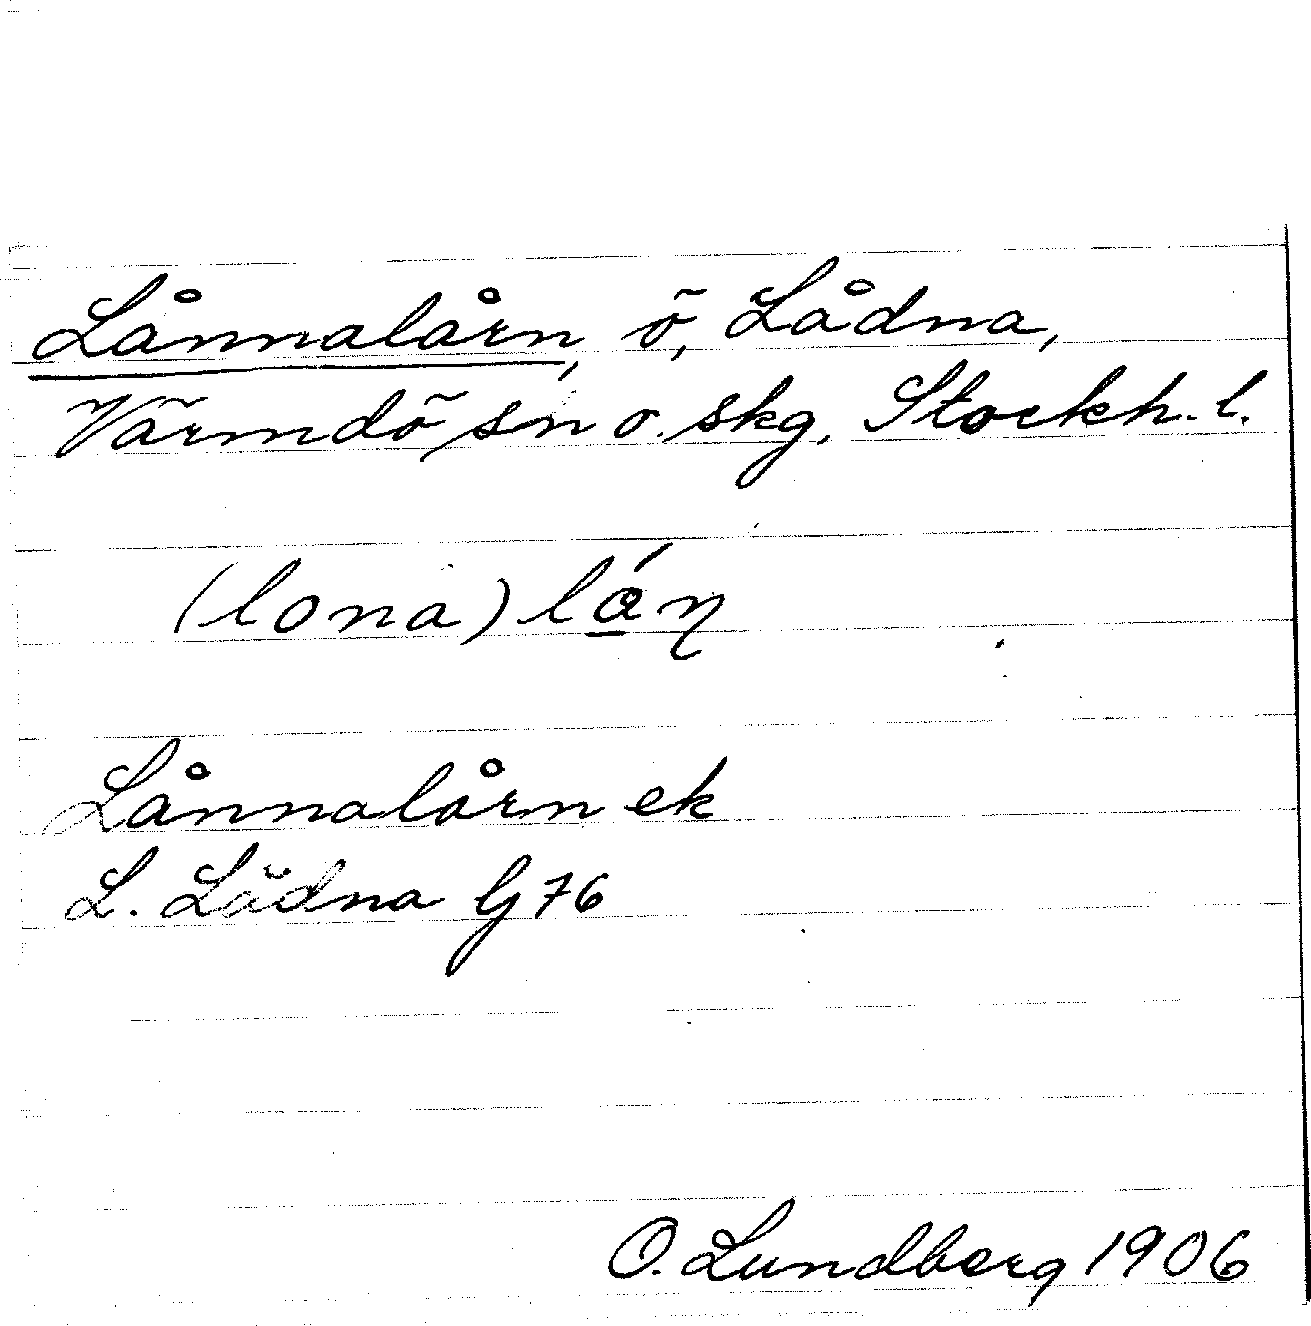 Lånnalårn, ö, Lådna,
Värmdö sn o. skg, Stockh. l.
(lona) lán
Lånnalårn ek
L. Lådna Gj 76
O. Lundberg 1906